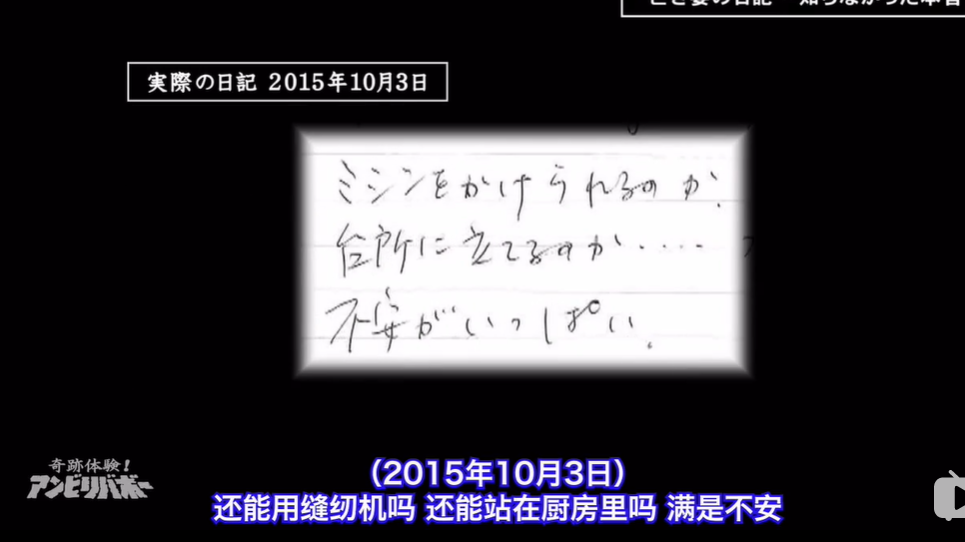 亡き妻の日記 知らなかった本音
実際の日記 2015年10月3日
ミシンをかけられるのか、
台所に立てるのか・・・・
不安がいっぱい。
奇跡体験!
アンビリバボー
(2015年10月3日)
还能用缝纫机吗 还能站在厨房里吗 满是不安